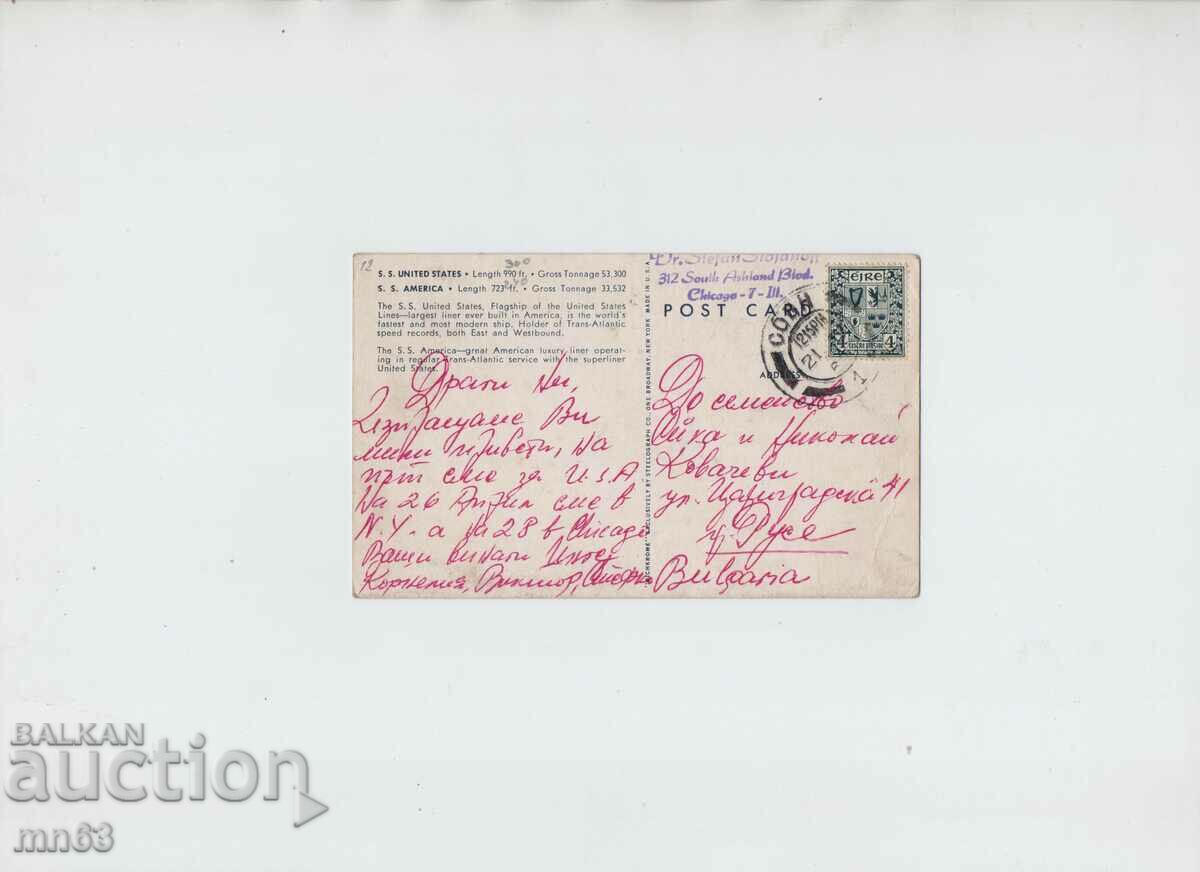 12
300
240
S. S. UNITED STATES • Length 990 ft. • Gross Tonnage 53,300
S. S. AMERICA • Length 723 ft. • Gross Tonnage 33,532
The S.S. United States, Flagship of the United States
Lines—largest liner ever built in America, is the world's
fastest and most modern ship. Holder of Trans-Atlantic
speed records, both East and Westbound.
The S.S. America—great American luxury liner operat-
ing in regular Trans-Atlantic service with the superliner
United States.
Драги
Изпращаме Ви
мили привети, На
път сме за U.S.A
На 26 Април сме в
N.Y. а на 28 в Chicago
Ваши
Корнелия, Виктор,
"RICHKROME" EXCLUSIVELY BY STEELOGRAPH CO., ONE BROADWAY, NEW YORK MADE IN U.S.A.
Dr. Stefan Stojanoff
312 South Ashland Blvd.
Chicago - 7 - Ill.
POST CARD
ADDRESS
COBH
1215PM
21
éire
4 4
До семейство
и Николай
Ковачеви
ул. Цариградска 41
гр. Русе
Bulgaria
BALKAN
auction
mn63